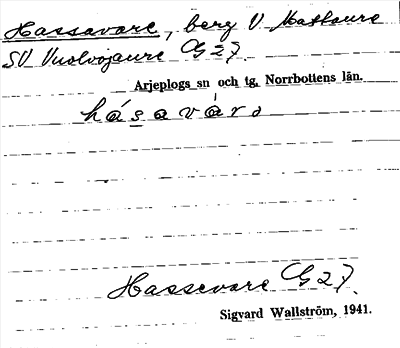 Hassavare, berg V. Mattaure
SV Vuolvojaure G 27.
Arjeplogs sn och tg, Norrbottens län.
hásavárɔ
Hassevare G 27.
Sigvard Wallström, 1941.